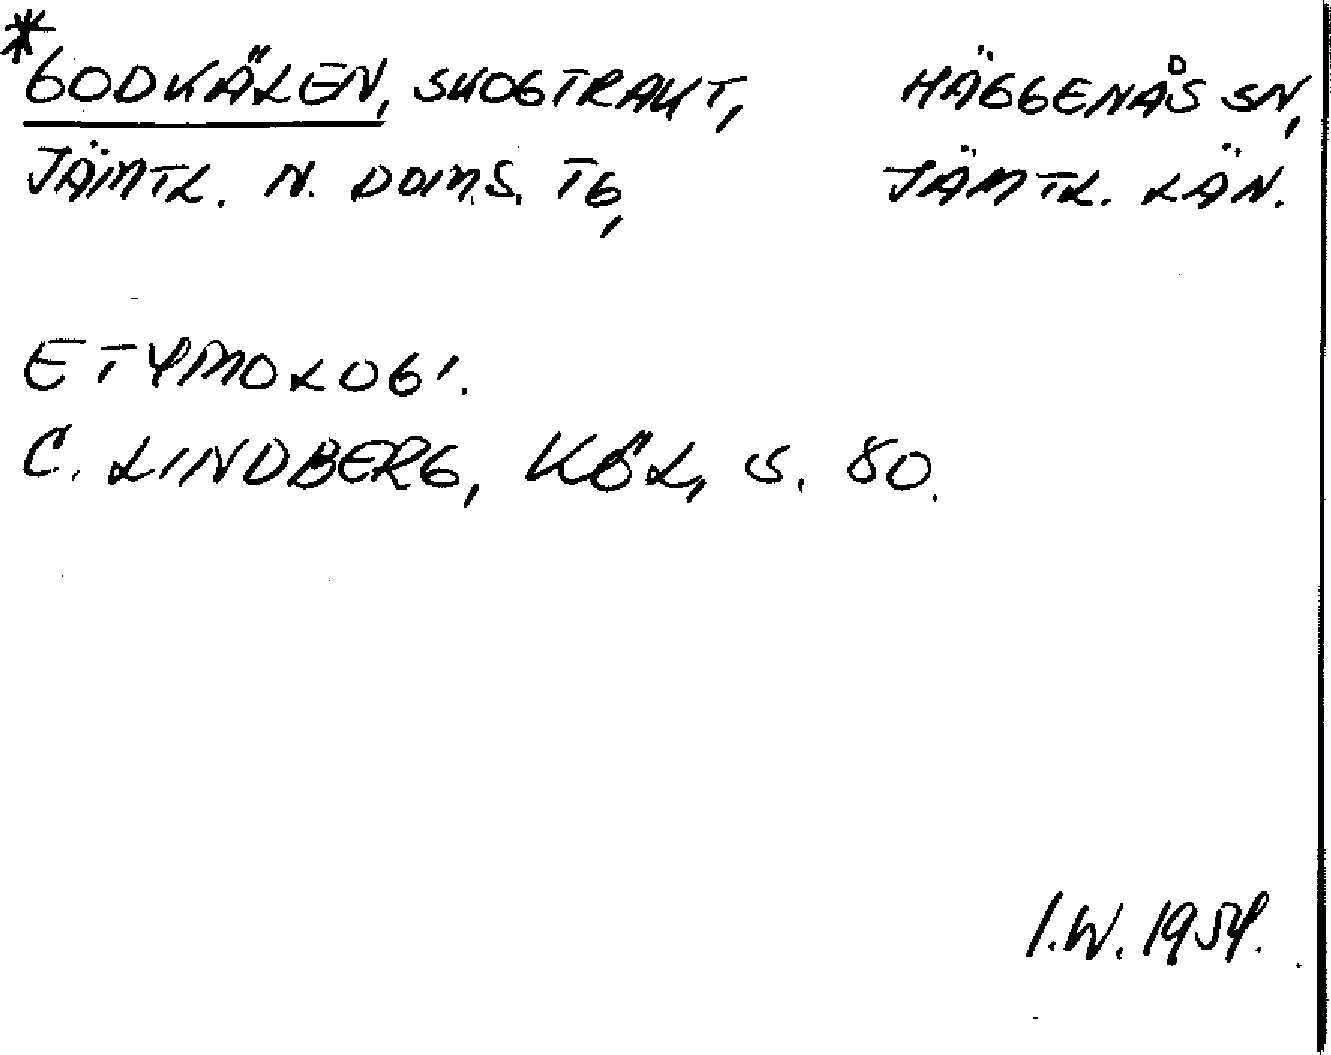 *GODKÄLEN, SKOGTRAKT, HÄGGENÅS SN,
JÄMTL. N. DOMS. TG, JÄMTL. LÄN.
ETYMOLOGI.
C. LINDBERG, KÖL, S. 80.
I.W. 1954.